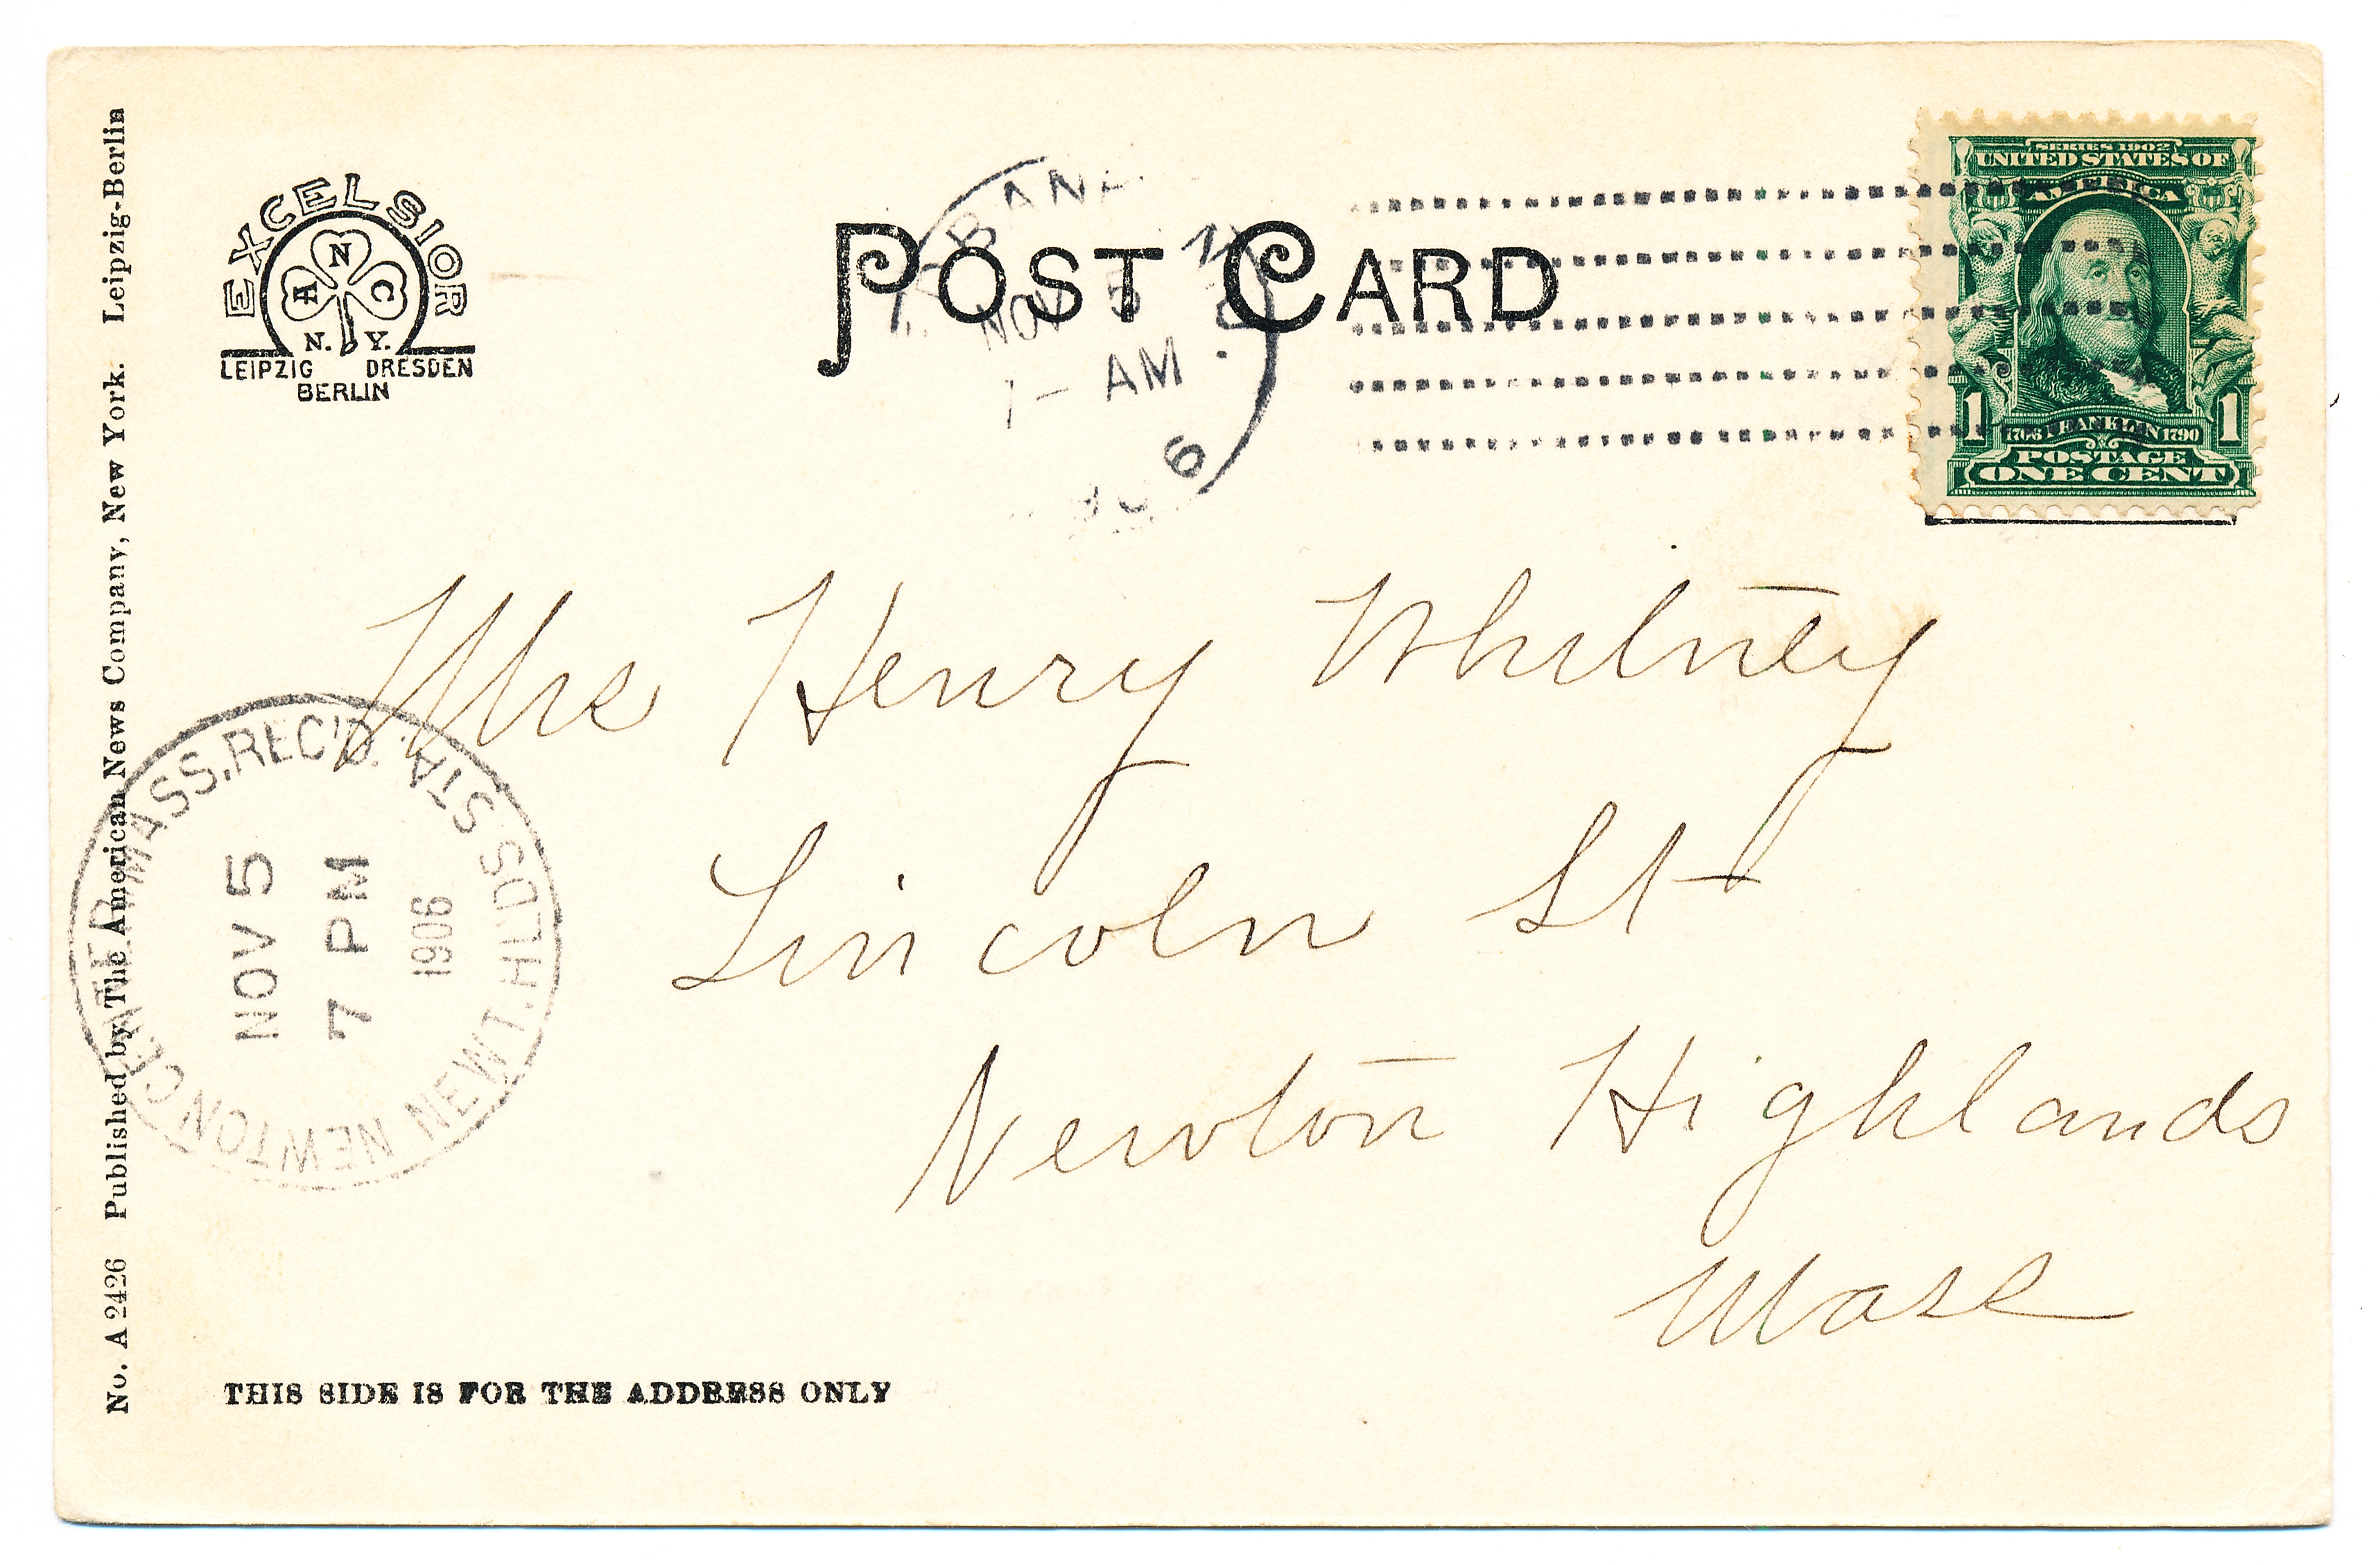 No. A 2426 Published by The American News Company, New York. Leipzig-Berlin
EXCELSIOR
A N C
N. Y.
LEIPZIG DRESDEN
BERLIN
POST CARD
NOV 5
AM
6
SERIES 1902
UNITED STATES OF
AMERICA
1 1706 FRANKLIN 1790 1
POSTAGE
ONE CENT
Mrs Henry Whitney
Lincoln St
Newton Highlands
Mass
NEWTON CENTRE MASS. REC'D.
NEWT. HLDS. STA.
NOV 5
7 PM
1906
THIS SIDE IS FOR THE ADDRESS ONLY